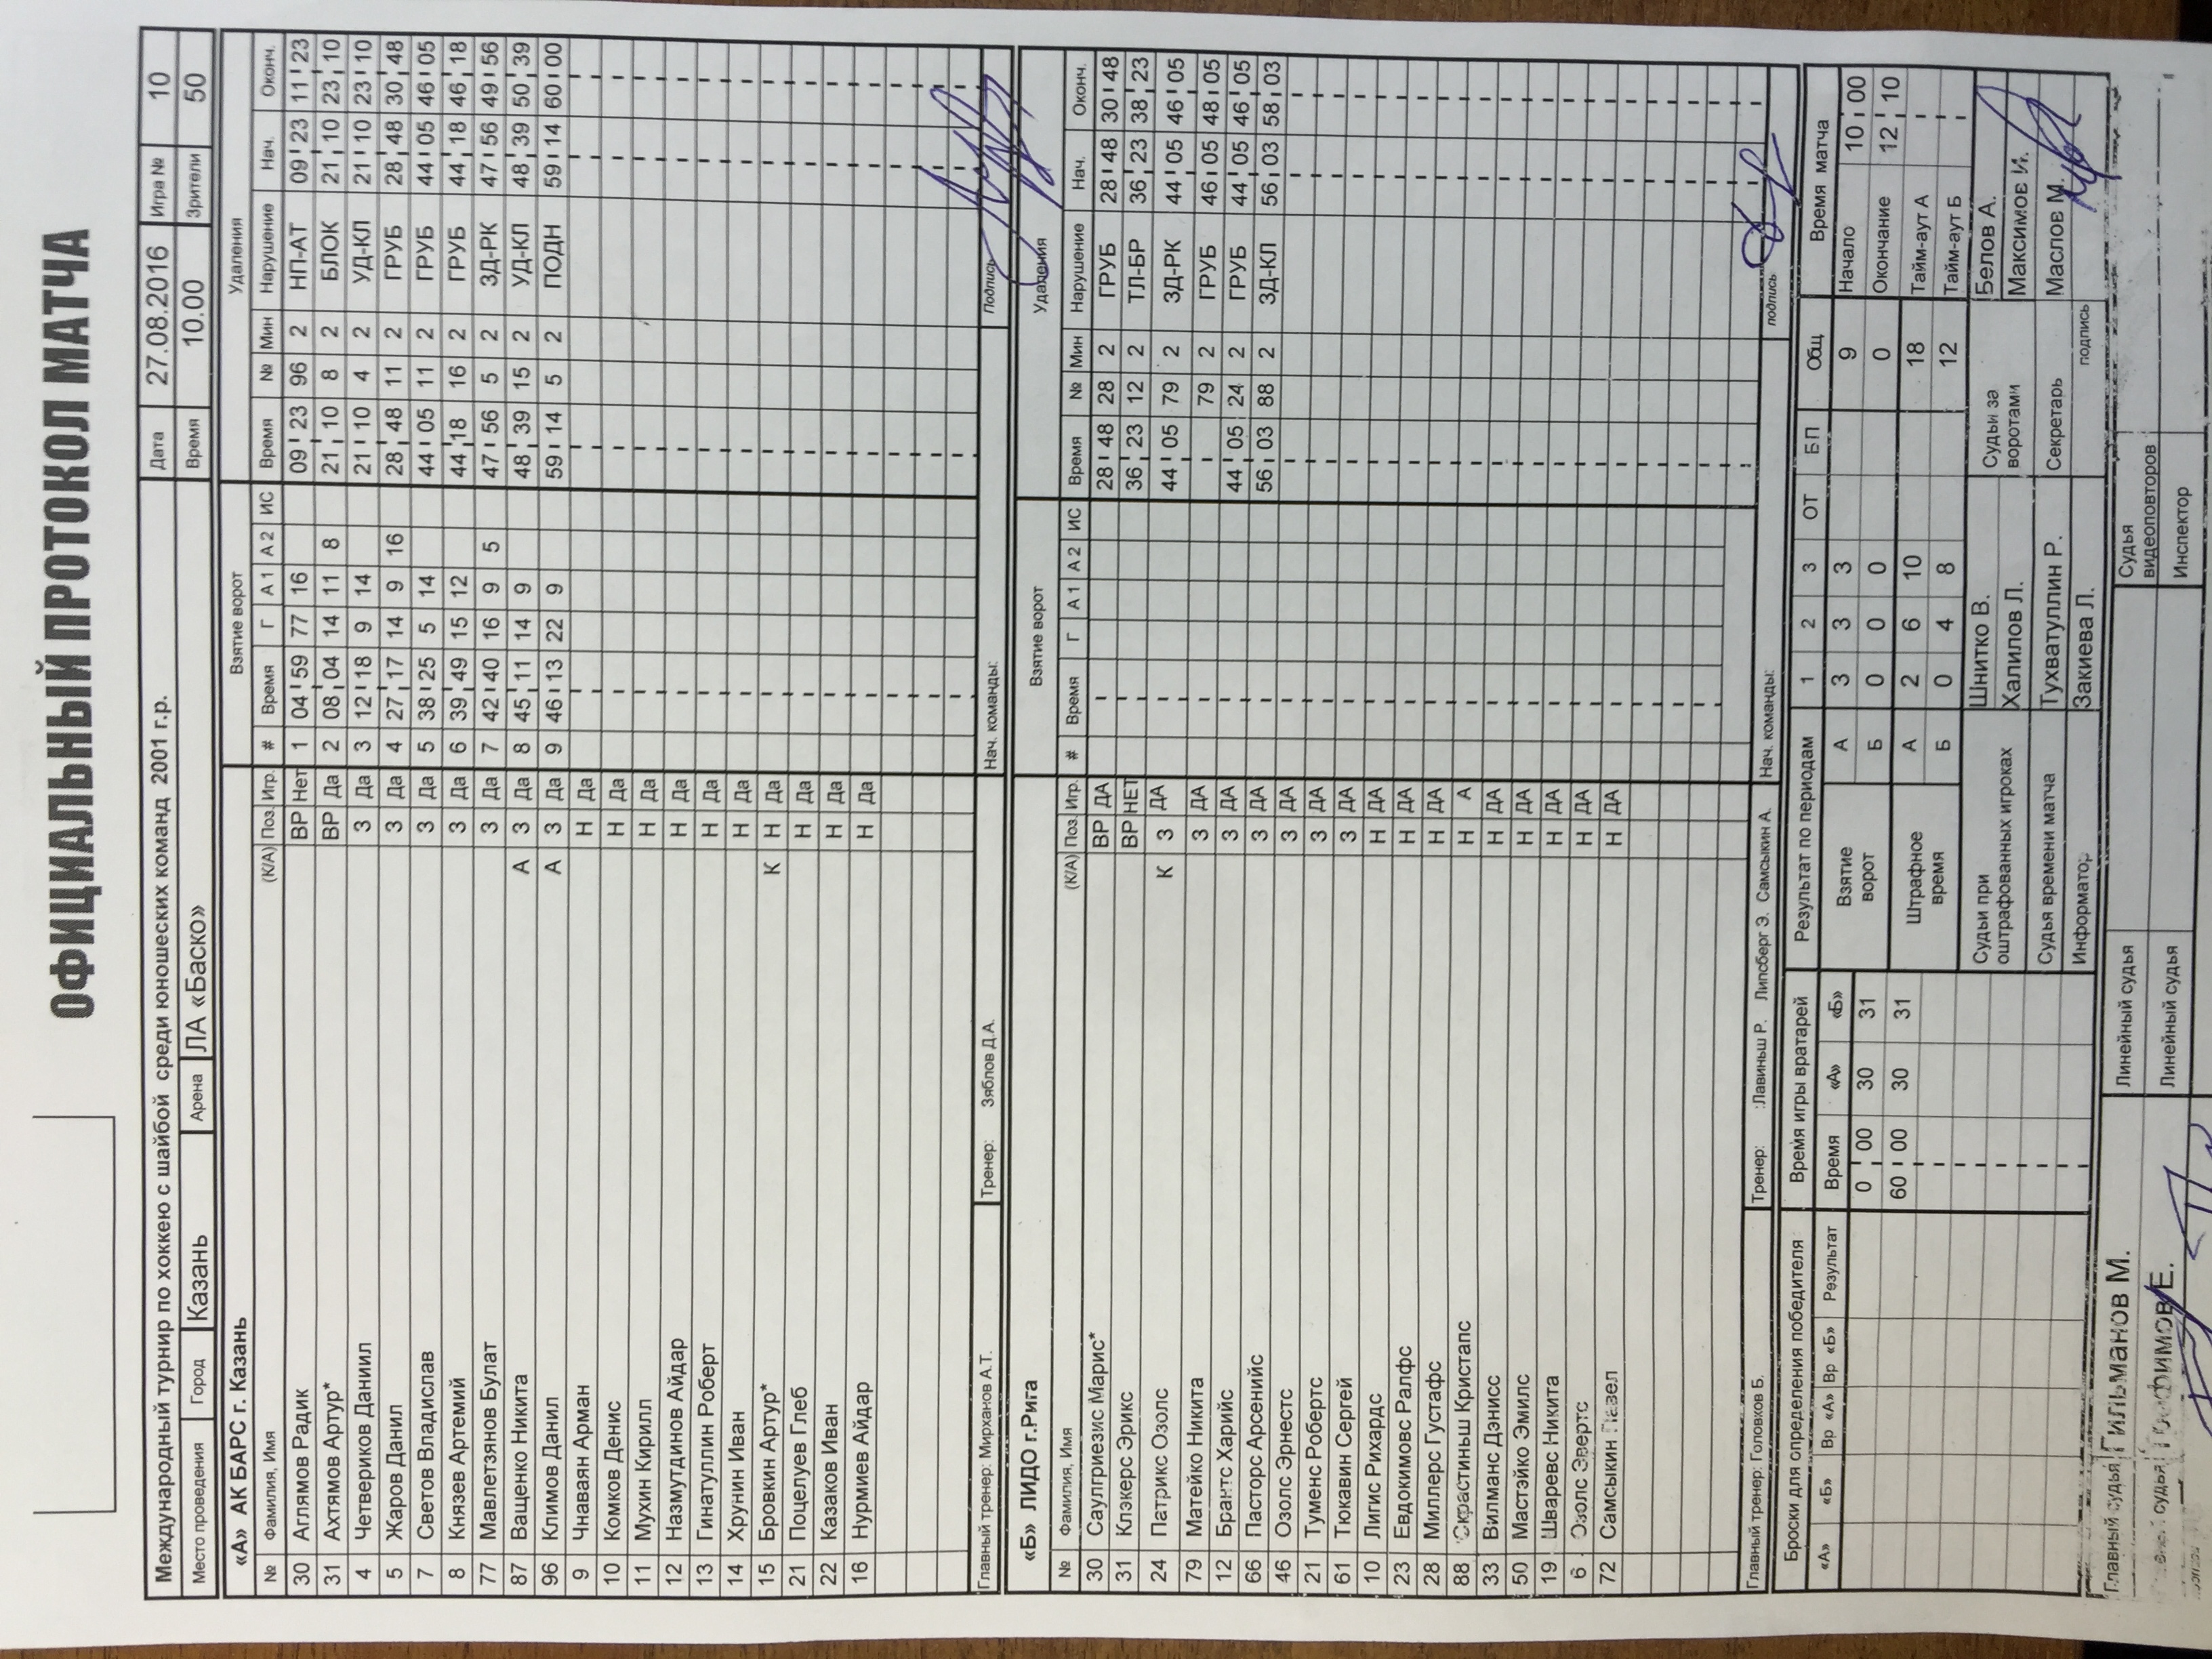 ОФИЦИАЛЬНЫЙ ПРОТОКОЛ МАТЧА
Международный турнир по хоккею с шайбой среди юношеских команд 2001 г.р. Дата 27.08.2016 Игра № 10
Место проведения Город Казань Арена ЛА «Баско» Время 10.00 Зрители 50
«А» АК БАРС г. Казань Взятие ворот Удаления
№ Фамилия, Имя (К/А) Поз. Игр. # Время Г А 1 А 2 ИС Время № Мин Нарушение Нач. Оконч.
30 Аглямов Радик ВР Нет 1 04 59 77 16 09 23 96 2 НП-АТ 09 23 11 23
31 Ахтямов Артур* ВР Да 2 08 04 14 11 8 21 10 8 2 БЛОК 21 10 23 10
4 Четвериков Даниил З Да 3 12 18 9 14 21 10 4 2 УД-КЛ 21 10 23 10
5 Жаров Данил З Да 4 27 17 14 9 16 28 48 11 2 ГРУБ 28 48 30 48
7 Светов Владислав З Да 5 38 25 5 14 44 05 11 2 ГРУБ 44 05 46 05
8 Князев Артемий З Да 6 39 49 15 12 44 18 16 2 ГРУБ 44 18 46 18
77 Мавлетзянов Булат З Да 7 42 40 16 9 5 47 56 5 2 ЗД-РК 47 56 49 56
87 Ващенко Никита А З Да 8 45 11 14 9 48 39 15 2 УД-КЛ 48 39 50 39
96 Климов Данил А З Да 9 46 13 22 9 59 14 5 2 ПОДН 59 14 60 00
9 Чнаваян Арман Н Да
10 Комков Денис Н Да
11 Мухин Кирилл Н Да
12 Назмутдинов Айдар Н Да
13 Гинатуллин Роберт Н Да
14 Хрунин Иван Н Да
15 Бровкин Артур* К Н Да
21 Поцелуев Глеб Н Да
22 Казаков Иван Н Да
16 Нурмиев Айдар Н Да
Главный тренер: Мирханов А.Т. Тренер: Зяблов Д.А. Нач. команды: Подпись
«Б» ЛИДО г.Рига Взятие ворот Удаления
№ Фамилия, Имя (К/А) Поз. Игр. # Время Г А 1 А 2 ИС Время № Мин Нарушение Нач. Оконч.
30 Саулгриезис Марис* ВР ДА 28 48 28 2 ГРУБ 28 48 30 48
31 Клэкерс Эрикс ВР НЕТ 36 23 12 2 ТЛ-БР 36 23 38 23
24 Патрикс Озолс К З ДА 44 05 79 2 ЗД-РК 44 05 46 05
79 Матейко Никита З ДА 79 2 ГРУБ 46 05 48 05
12 Брантс Харийс З ДА 44 05 24 2 ГРУБ 44 05 46 05
66 Пасторс Арсенийс З ДА 56 03 88 2 ЗД-КЛ 56 03 58 03
46 Озолс Эрнестс З ДА
21 Туменс Робертс З ДА
61 Тюкавин Сергей З ДА
10 Лигис Рихардс Н ДА
23 Евдокимовс Ралфс Н ДА
28 Миллерс Густафс Н ДА
88 Скрастиньш Кристапс Н А
33 Вилманс Дэнисс Н ДА
50 Мастэйко Эмилс Н ДА
19 Шваревс Никита Н ДА
6 Озолс Эвертс Н ДА
72 Самсыкин Павел Н ДА
Главный тренер: Головков Б. Тренер: :Лавиньш Р. Липсберг Э. Самсыкин А. Нач. команды: подпись
Броски для определения победителя Время игры вратарей Результат по периодам 1 2 3 ОТ БП Общ Время матча
«А» «Б» Вр «А» Вр «Б» Результат Время «А» «Б» Взятие ворот А 3 3 3 9 Начало 10 00
0 00 30 31 Б 0 0 0 0 Окончание 12 10
60 00 30 31 Штрафное время А 2 6 10 18 Тайм-аут А
Б 0 4 8 12 Тайм-аут Б
Судьи при оштрафованных игроках Шнитко В. Судьи за воротами Белов А.
Халилов Л. Максимов И.
Судья времени матча Тухватуллин Р. Секретарь Маслов М.
Информатор Закиева Л. подпись
Главный судья Гильманов М. Линейный судья Судья видеоповторов
судья Трофимов Е. Линейный судья Инспектор